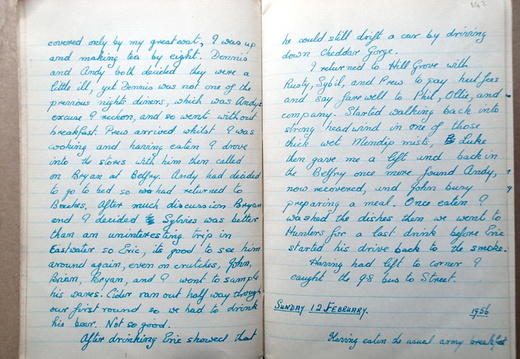 covered only by my greatcoat, I was up
and making tea by eight. Dennis
and Andy both decided they were a
little ill, yet Dennis was not one of the
previous nights diners, which was Andys
excuse I reckon, and so went without
breakfast. Prew arrived whilst I was
cooking and having eaten I drove
into the stores with him then called
on Bryan at Belfry. Andy had decided
to go to bed so had returned to
Beeches. After much discussion Bryan
and I decided Sylvies was better
than an uninteresting trip in
Eastwater so Eric, its good to see him
around again, even on crutches, John,
Brian, Bryan, and I went to sample
his wares. Cider ran out half way through
our first round so we had to drink
his beer. Not so good.
After drinking Eric showed that
he could still drift a car by driving
down Cheddar Gorge.
I returned to Hill Grove with
Rusty, Sybil, and Prew to pay hut fees
and say farewell to Phil, Ollie, and
company. Started walking back into
strong headwind in one of those
thick wet Mendip mists, Luke
then gave me a lift and back in
the Belfry once more found Andy,
now recovered, and John busy
preparing a meal. Once eaten I
washed the dishes then we went to
Hunters for a last drink before Eric
started his drive back to the smoke.
Having had left to corner I
caught the 98 bus to Street.
SUNDAY 12 FEBRUARY. 1956
Having eaten the usual army breakfast